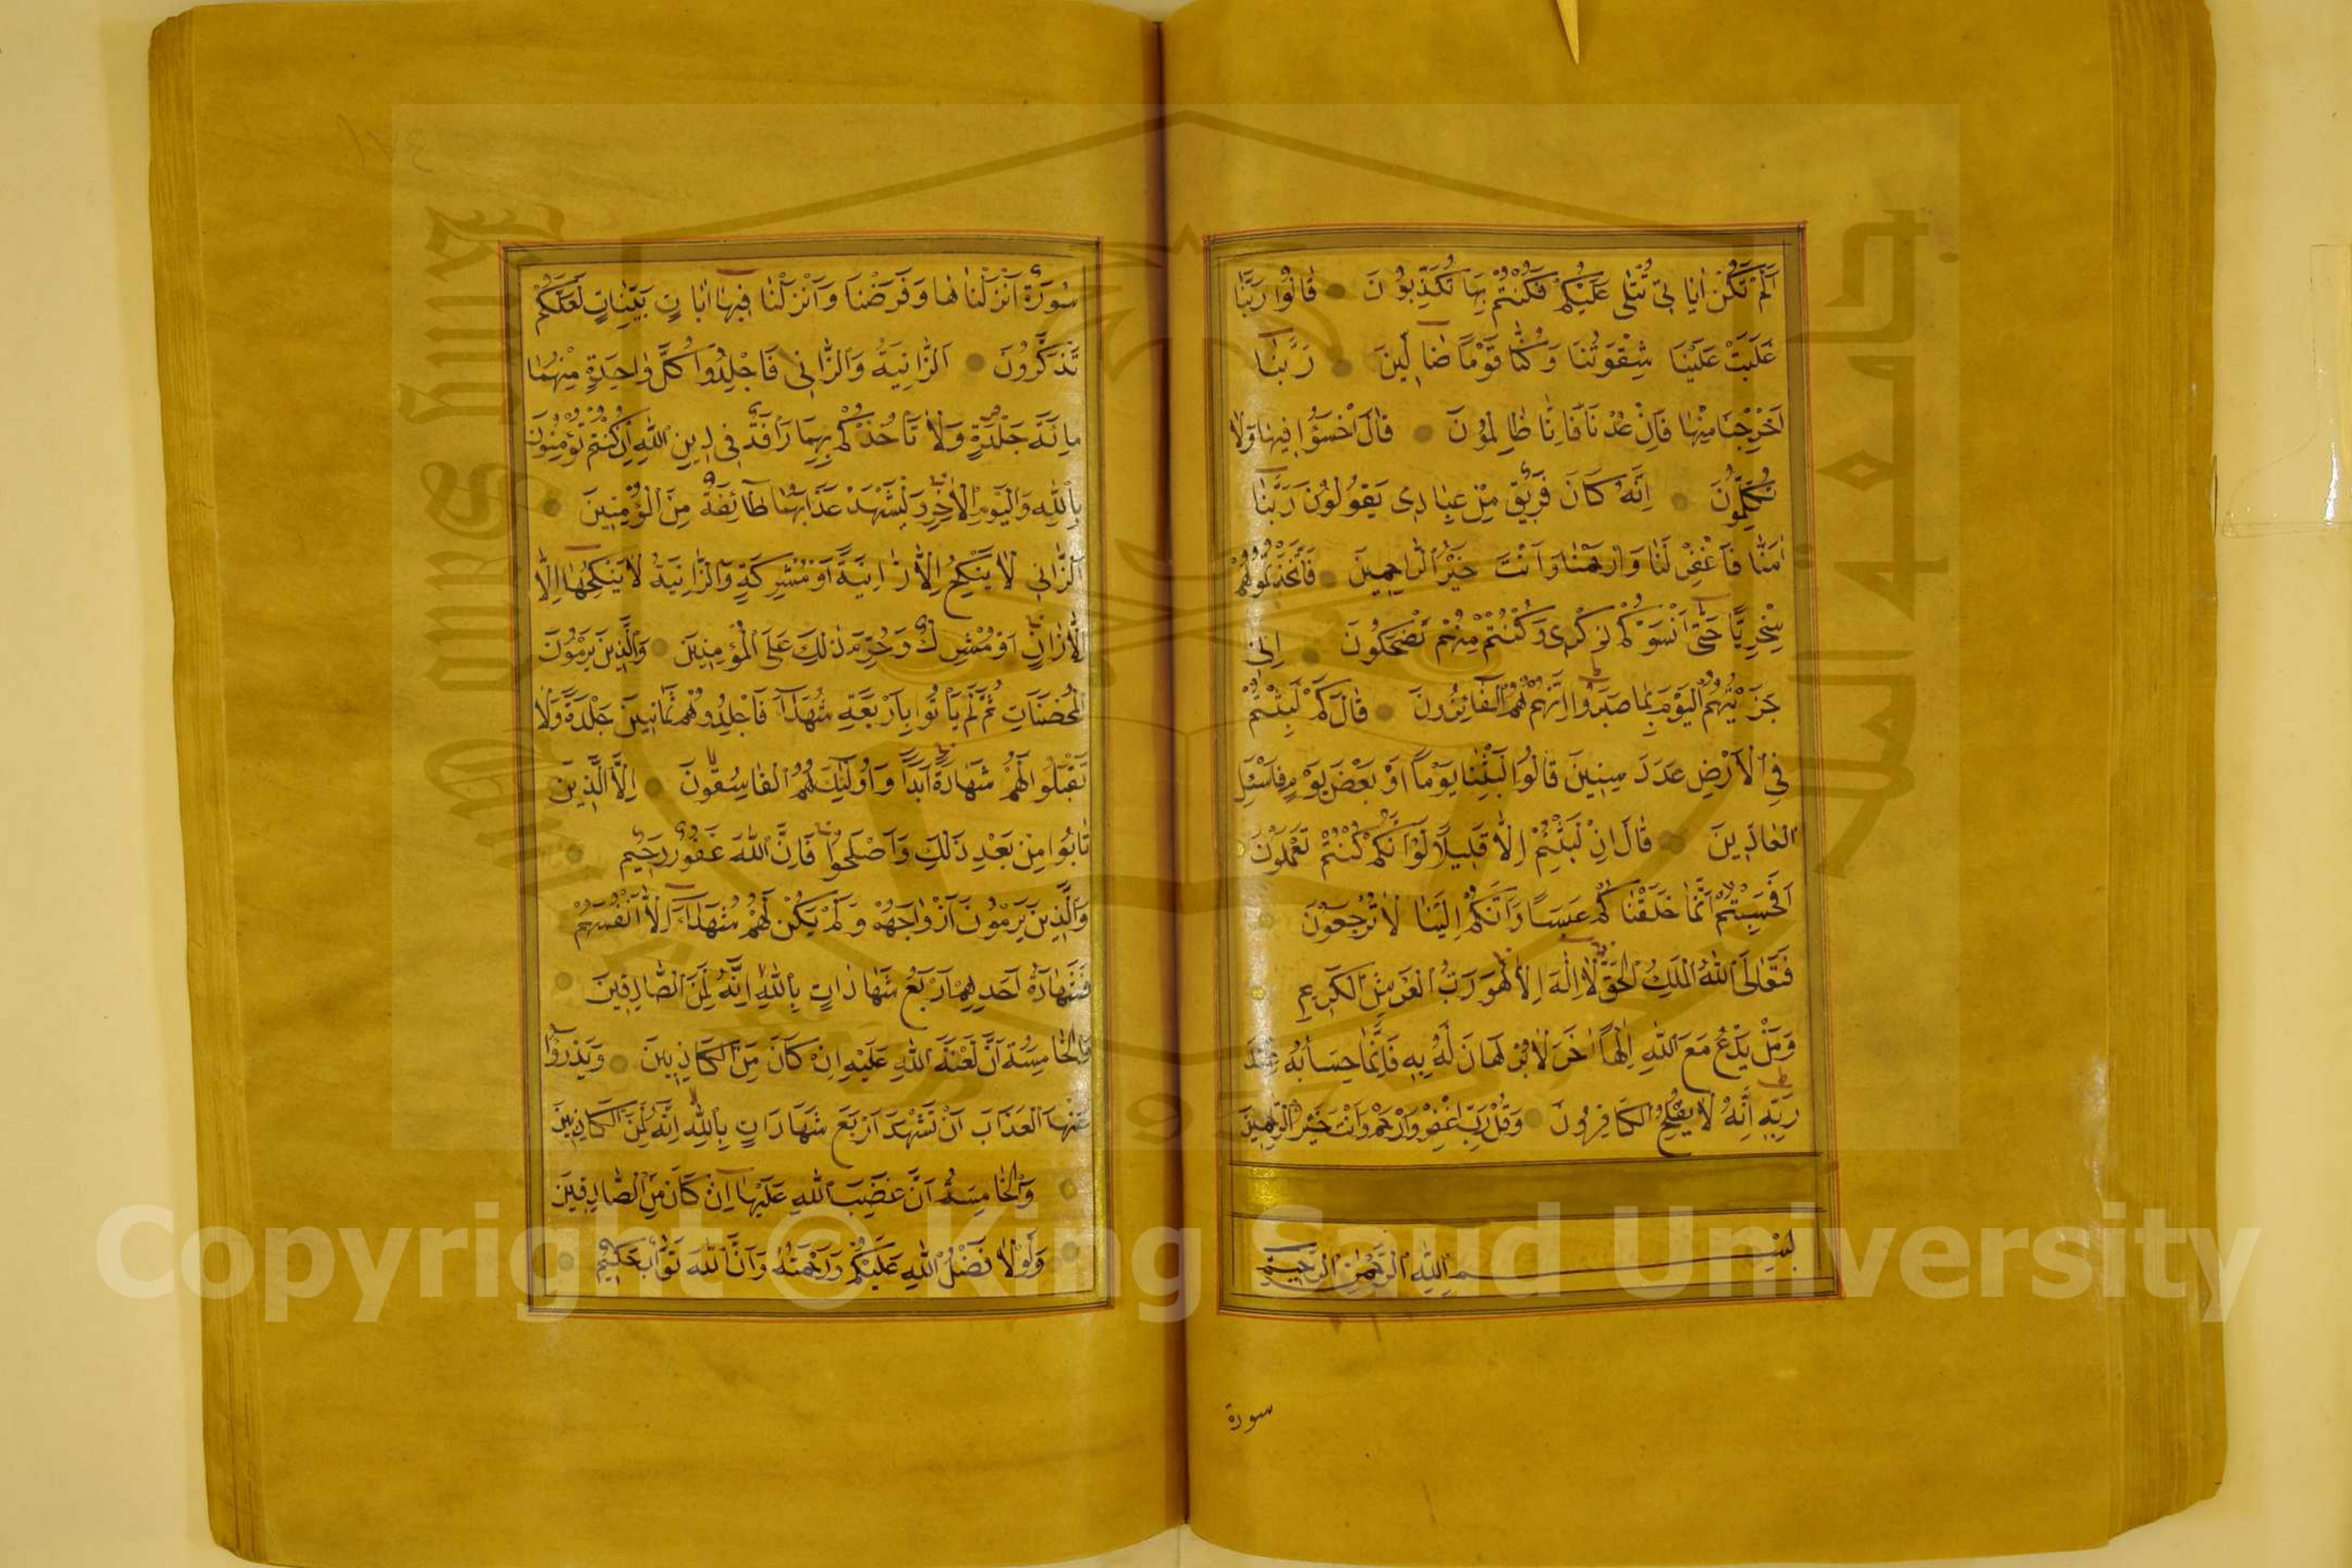 اَلَمْ تَكُنْ اٰيَاتِى تُتْلٰى عَلَيْكُمْ فَكُنْتُمْ بِهَا تُكَذِّبُوُنَ قَالُوُا رَبَّنَا
غَلَبَتْ عَلَيْنَا شِقْوَتُنَا وَكُنَّا قَوْمًا ضَالِّينَ رَبَّنَا
اَخْرِجْنَا مِنْهَا فَاِنْ عُدْنَا فَاِنَّا ظَالِمُوُنَ قَالَ اخْسَؤُا فِيهَا وَلَا
تُكَلِّمُوُنَ اِنَّهُ كَانَ فَرِيقٌ مِنْ عِبَادِى يَقُوُلُوُنَ رَبَّنَا
اٰمَنَّا فَاغْفِرْ لَنَا وَارْحَمْنَا وَاَنْتَ خَيْرُ الرَّاحِمِينَ فَاتَّخَذْتُمُوُهُمْ
سِخْرِيًّا حَتّٰى اَنْسَوْكُمْ ذِكْرِى وَكُنْتُمْ مِنْهُمْ تَضْحَكُونَ اِنِّى
جَزَيْتُهُمُ الْيَوْمَ بِمَا صَبَرُوا اِنَّهُمْ هُمُ الْفَائِزُونَ قَالَ كَمْ لَبِثْتُمْ
فِى الْاَرْضِ عَدَدَ سِنِينَ قَالُوُا لَبِثْنَا يَوْمًا اَوْ بَعْضَ يَوْمٍ فَاسْئَلِ
الْعَادِّينَ قَالَ اِنْ لَبِثْتُمْ اِلَّا قَلِيلًا لَوْ اَنَّكُمْ كُنْتُمْ تَعْلَمُوُنَ
اَفَحَسِبْتُمْ اَنَّمَا خَلَقْنَاكُمْ عَبَسًا وَاَنَّكُمْ اِلَيْنَا لَا تُرْجَعُوُنَ
فَتَعَالَى اللّٰهُ الْمَلِكُ الْحَقُّ لَا اِلٰهَ اِلَّا هُوَ رَبُّ الْعَرْشِ الْكَرِيمِ
وَمَنْ يَدْعُ مَعَ اللّٰهِ اِلٰهًا اٰخَرَ لَا بُرْهَانَ لَهُ بِهِ فَاِنَّمَا حِسَابُهُ عِنْدَ
رَبِّهِ اِنَّهُ لَا يُفْلِحُ الْكَافِرُونَ وَقُلْ رَبِّ اغْفِرْ وَارْحَمْ وَاَنْتَ خَيْرُ الرَّاحِمِينَ
بِسْمِ اللّٰهِ الرَّحْمٰنِ الرَّحِيمِ
سورة
سُورَةٌ اَنْزَلْنَاهَا وَفَرَضْنَا وَاَنْزَلْنَا فِيهَا اٰيَاتٍ بَيِّنَاتٍ لَعَلَّكُمْ
تَذَكَّرُونَ اَلزَّانِيَةُ وَالزَّانِى فَاجْلِدُوا كُلَّ وَاحِدَةٍ مِنْهُمَا
مِائَةَ جَلْدَةٍ وَلَا تَاْخُذْكُمْ بِهِمَا رَاْفَةٌ فِى دِينِ اللّٰهِ اِنْ كُنْتُمْ تُؤْمِنُوُنَ
بِاللّٰهِ وَالْيَوْمِ الْاٰخِرِ وَلْيَشْهَدْ عَذَابَهُمَا طَائِفَةٌ مِنَ الْمُؤْمِنِينَ
اَلزَّانِى لَا يَنْكِحُ اِلَّا زَانِيَةً اَوْ مُشْرِكَةٍ وَالزَّانِيَةُ لَا يَنْكِحُهَا اِلَّا
اِلَّا زَانٍ اَوْ مُشْرِكٌ وَحُرِّمَ ذٰلِكَ عَلَى الْمُؤْمِنِينَ وَالَّذِينَ يَرْمُوُنَ
الْمُحْصَنَاتِ ثُمَّ لَمْ يَاْتُوا بِاَرْبَعَةِ شُهَدَاءَ فَاجْلِدُوهُمْ ثَمَانِينَ جَلْدَةً وَلَا
تَقْبَلُوا لَهُمْ شَهَادَةً اَبَدًا وَاُولٰئِكَ هُمُ الْفَاسِقُونَ اِلَّا الَّذِينَ
تَابُوا مِنْ بَعْدِ ذٰلِكَ وَاَصْلَحُوا فَاِنَّ اللّٰهَ غَفُورٌ رَحِيمٌ
وَالَّذِينَ يَرْمُوُنَ اَزْوَاجَهُمْ وَلَمْ يَكُنْ لَهُمْ شُهَدَاءُ اِلَّا اَنْفُسُهُمْ
فَشَهَادَةُ اَحَدِهِمْ اَرْبَعُ شَهَادَاتٍ بِاللّٰهِ اِنَّهُ لَمِنَ الصَّادِقِينَ
وَالْخَامِسَةُ اَنَّ لَعْنَةَ اللّٰهِ عَلَيْهِ اِنْ كَانَ مِنَ الْكَاذِبِينَ وَيَدْرَؤُا
عَنْهَا الْعَذَابَ اَنْ تَشْهَدَ اَرْبَعَ شَهَادَاتٍ بِاللّٰهِ اِنَّهُ لَمِنَ الْكَاذِبِينَ
وَالْخَامِسَةُ اَنَّ غَضَبَ اللّٰهِ عَلَيْهَا اِنْ كَانَ مِنَ الصَّادِقِينَ
وَلَوْلَا فَضْلُ اللّٰهِ عَلَيْكُمْ وَرَحْمَتُهُ وَاَنَّ اللّٰهَ تَوَّابٌ حَكِيمٌ
Copyright © King Saud University